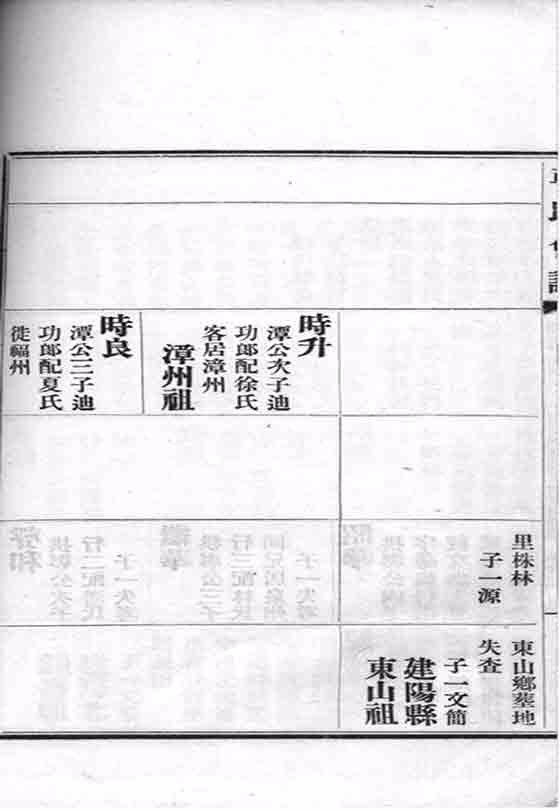 時升
潭公次子迪
功郎配徐氏
客居漳州
漳州祖
時良
潭公三子迪
功郎配夏氏
徙福州
里株林
子一源
東山鄉塟地
失查
子一文簡
建陽縣
東山祖